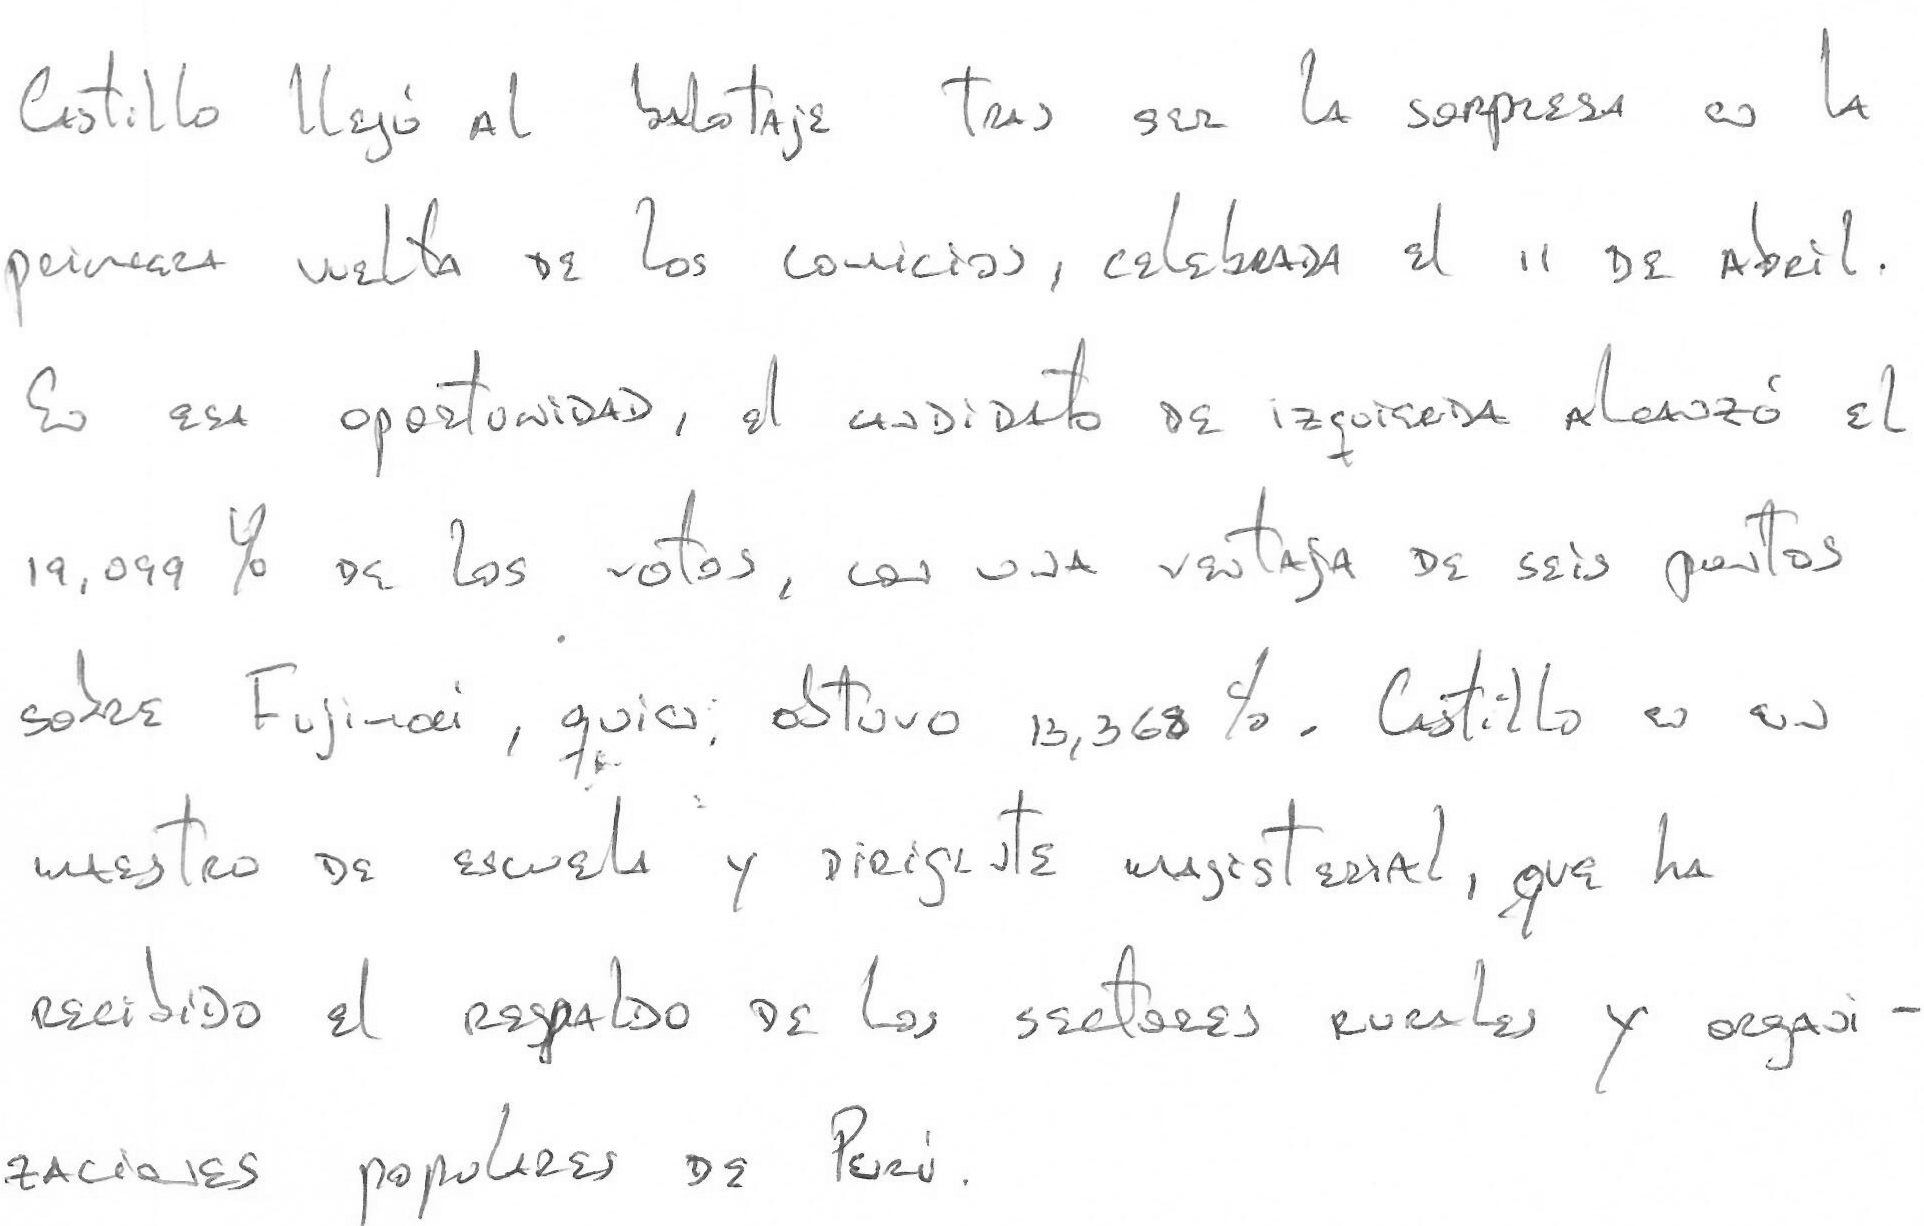 Castillo llegó al balotaje tras ser la sorpresa en la
primera vuelta de los comicios, celebrada el 11 de abril.
En esa oportunidad, el candidato de izquierda alcanzó el
19,099 % de los votos, con una ventaja de seis puntos
sobre Fujimori, quien obtuvo 13,368 %. Castillo es un
maestro de escuela y dirigente magisterial, que ha
recibido el respaldo de los sectores rurales y organi-
zaciones populares de Perú.